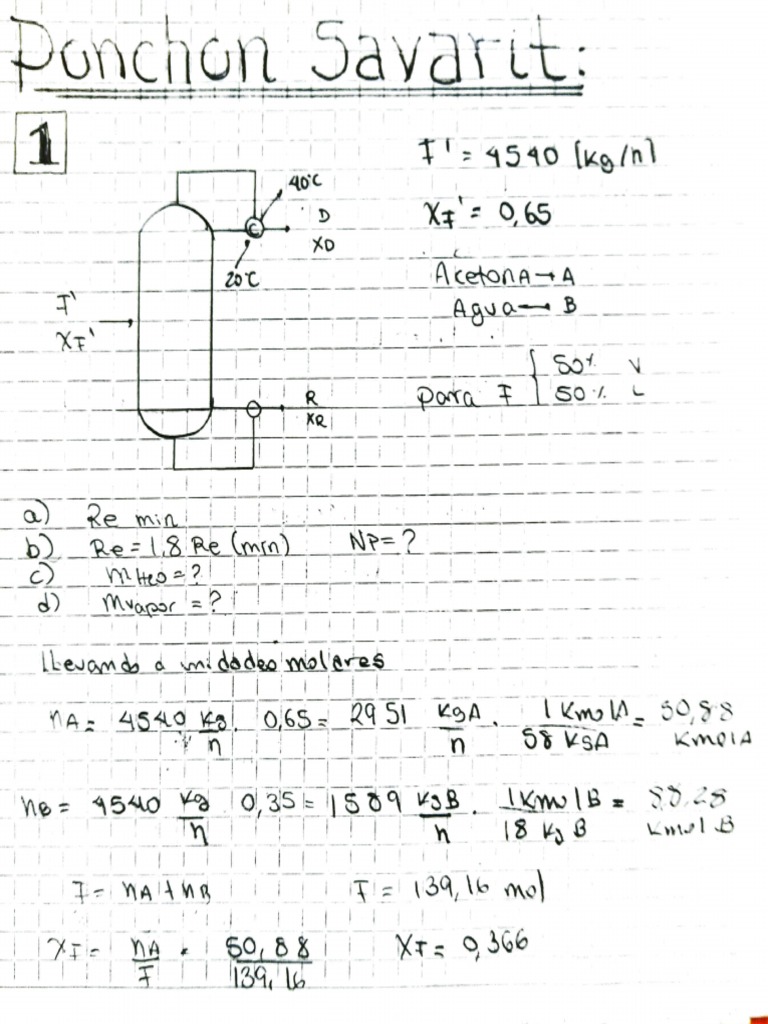 Ponchon Savarit:
1
F' = 4540 [kg/h]
40°C
D
XD
XF' = 0,65
20°C
Acetona → A
Agua → B
F'
XF'
para F { 50% V
50% L
R
XR
a) Re min
b) Re = 1,8 Re (min) NP = ?
c) mH2O = ?
d) mvapor = ?
Llevando a unidades molares
nA = 4540 kg/h . 0,65 = 2951 kgA/h . 1 KmolA/58 KgA = 50,88 KmolA
nB = 4540 kg/h . 0,35 = 1589 kgB/h . 1 KmolB/18 Kg B = 88,28 Kmol B
F = nA + nB F = 139,16 mol
XF = nA/F = 50,88/139,16 XF = 0,366